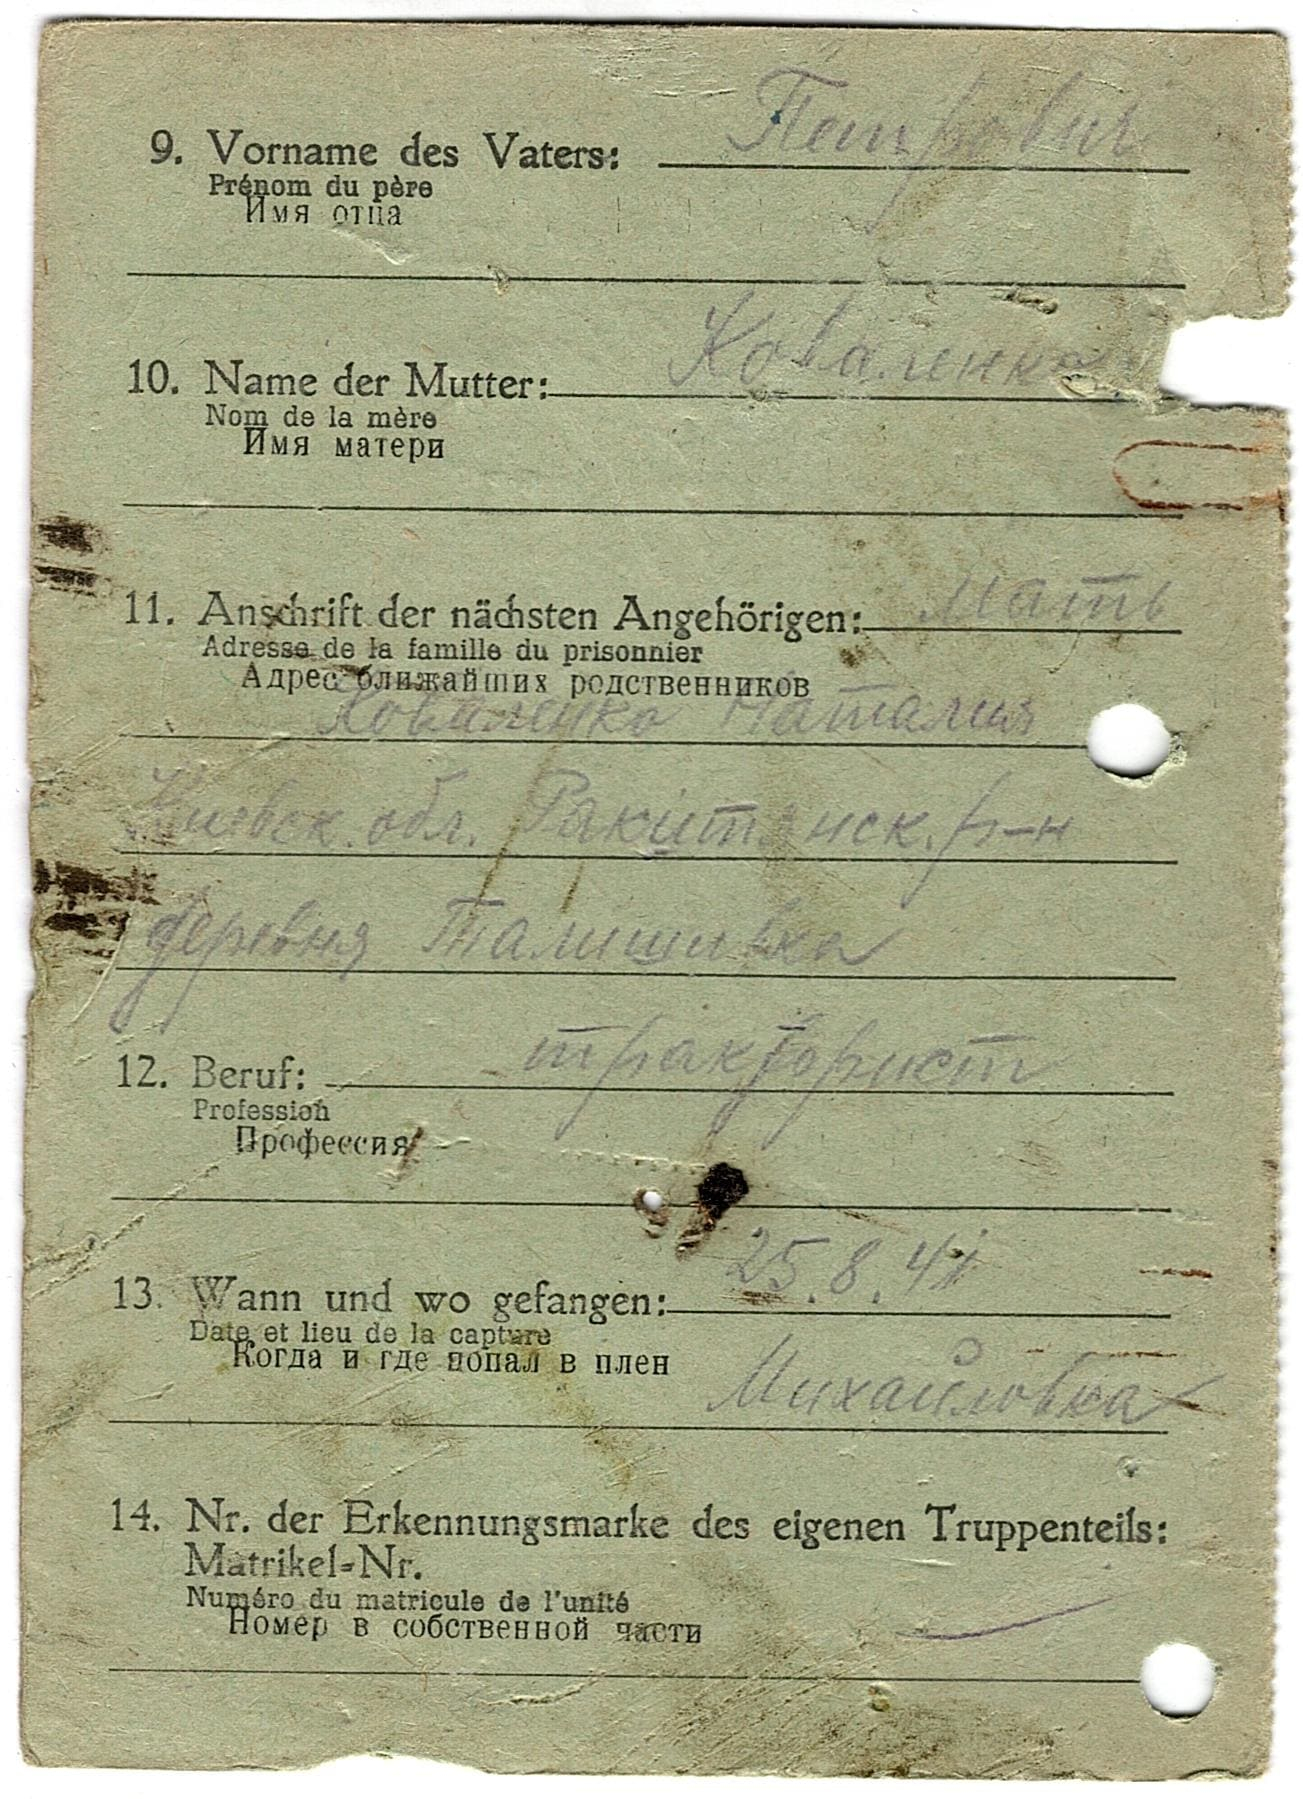 9. Vorname des Vaters: Петрович
Prénom du père
Имя отца
10. Name der Mutter: Коваленко
Nom de la mère
Имя матери
11. Anschrift der nächsten Angehörigen: Мать
Adresse de la famille du prisonnier
Адрес ближайших родственников
Коваленко Наталия
Киевск. обл. Ракитянск. р-н
деревня Талишивка
12. Beruf: тракторист
Profession
Профессия
13. Wann und wo gefangen: 25.8.41
Date et lieu de la capture
Когда и где попал в плен
Михайловка
14. Nr. der Erkennungsmarke des eigenen Truppenteils:
Matrikel-Nr.
Numéro du matricule de l'unité
Номер в собственной части